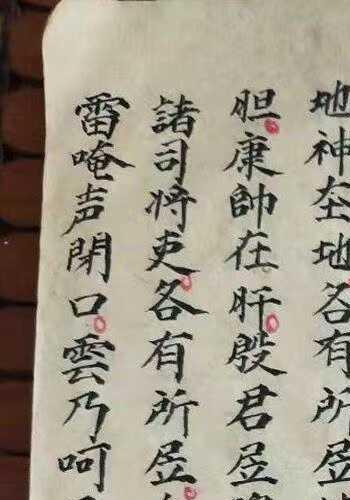 地神在地各有所
胆康帥在肝殷君居
諸司将吏各有所居
雷唵声閉口雲乃呵